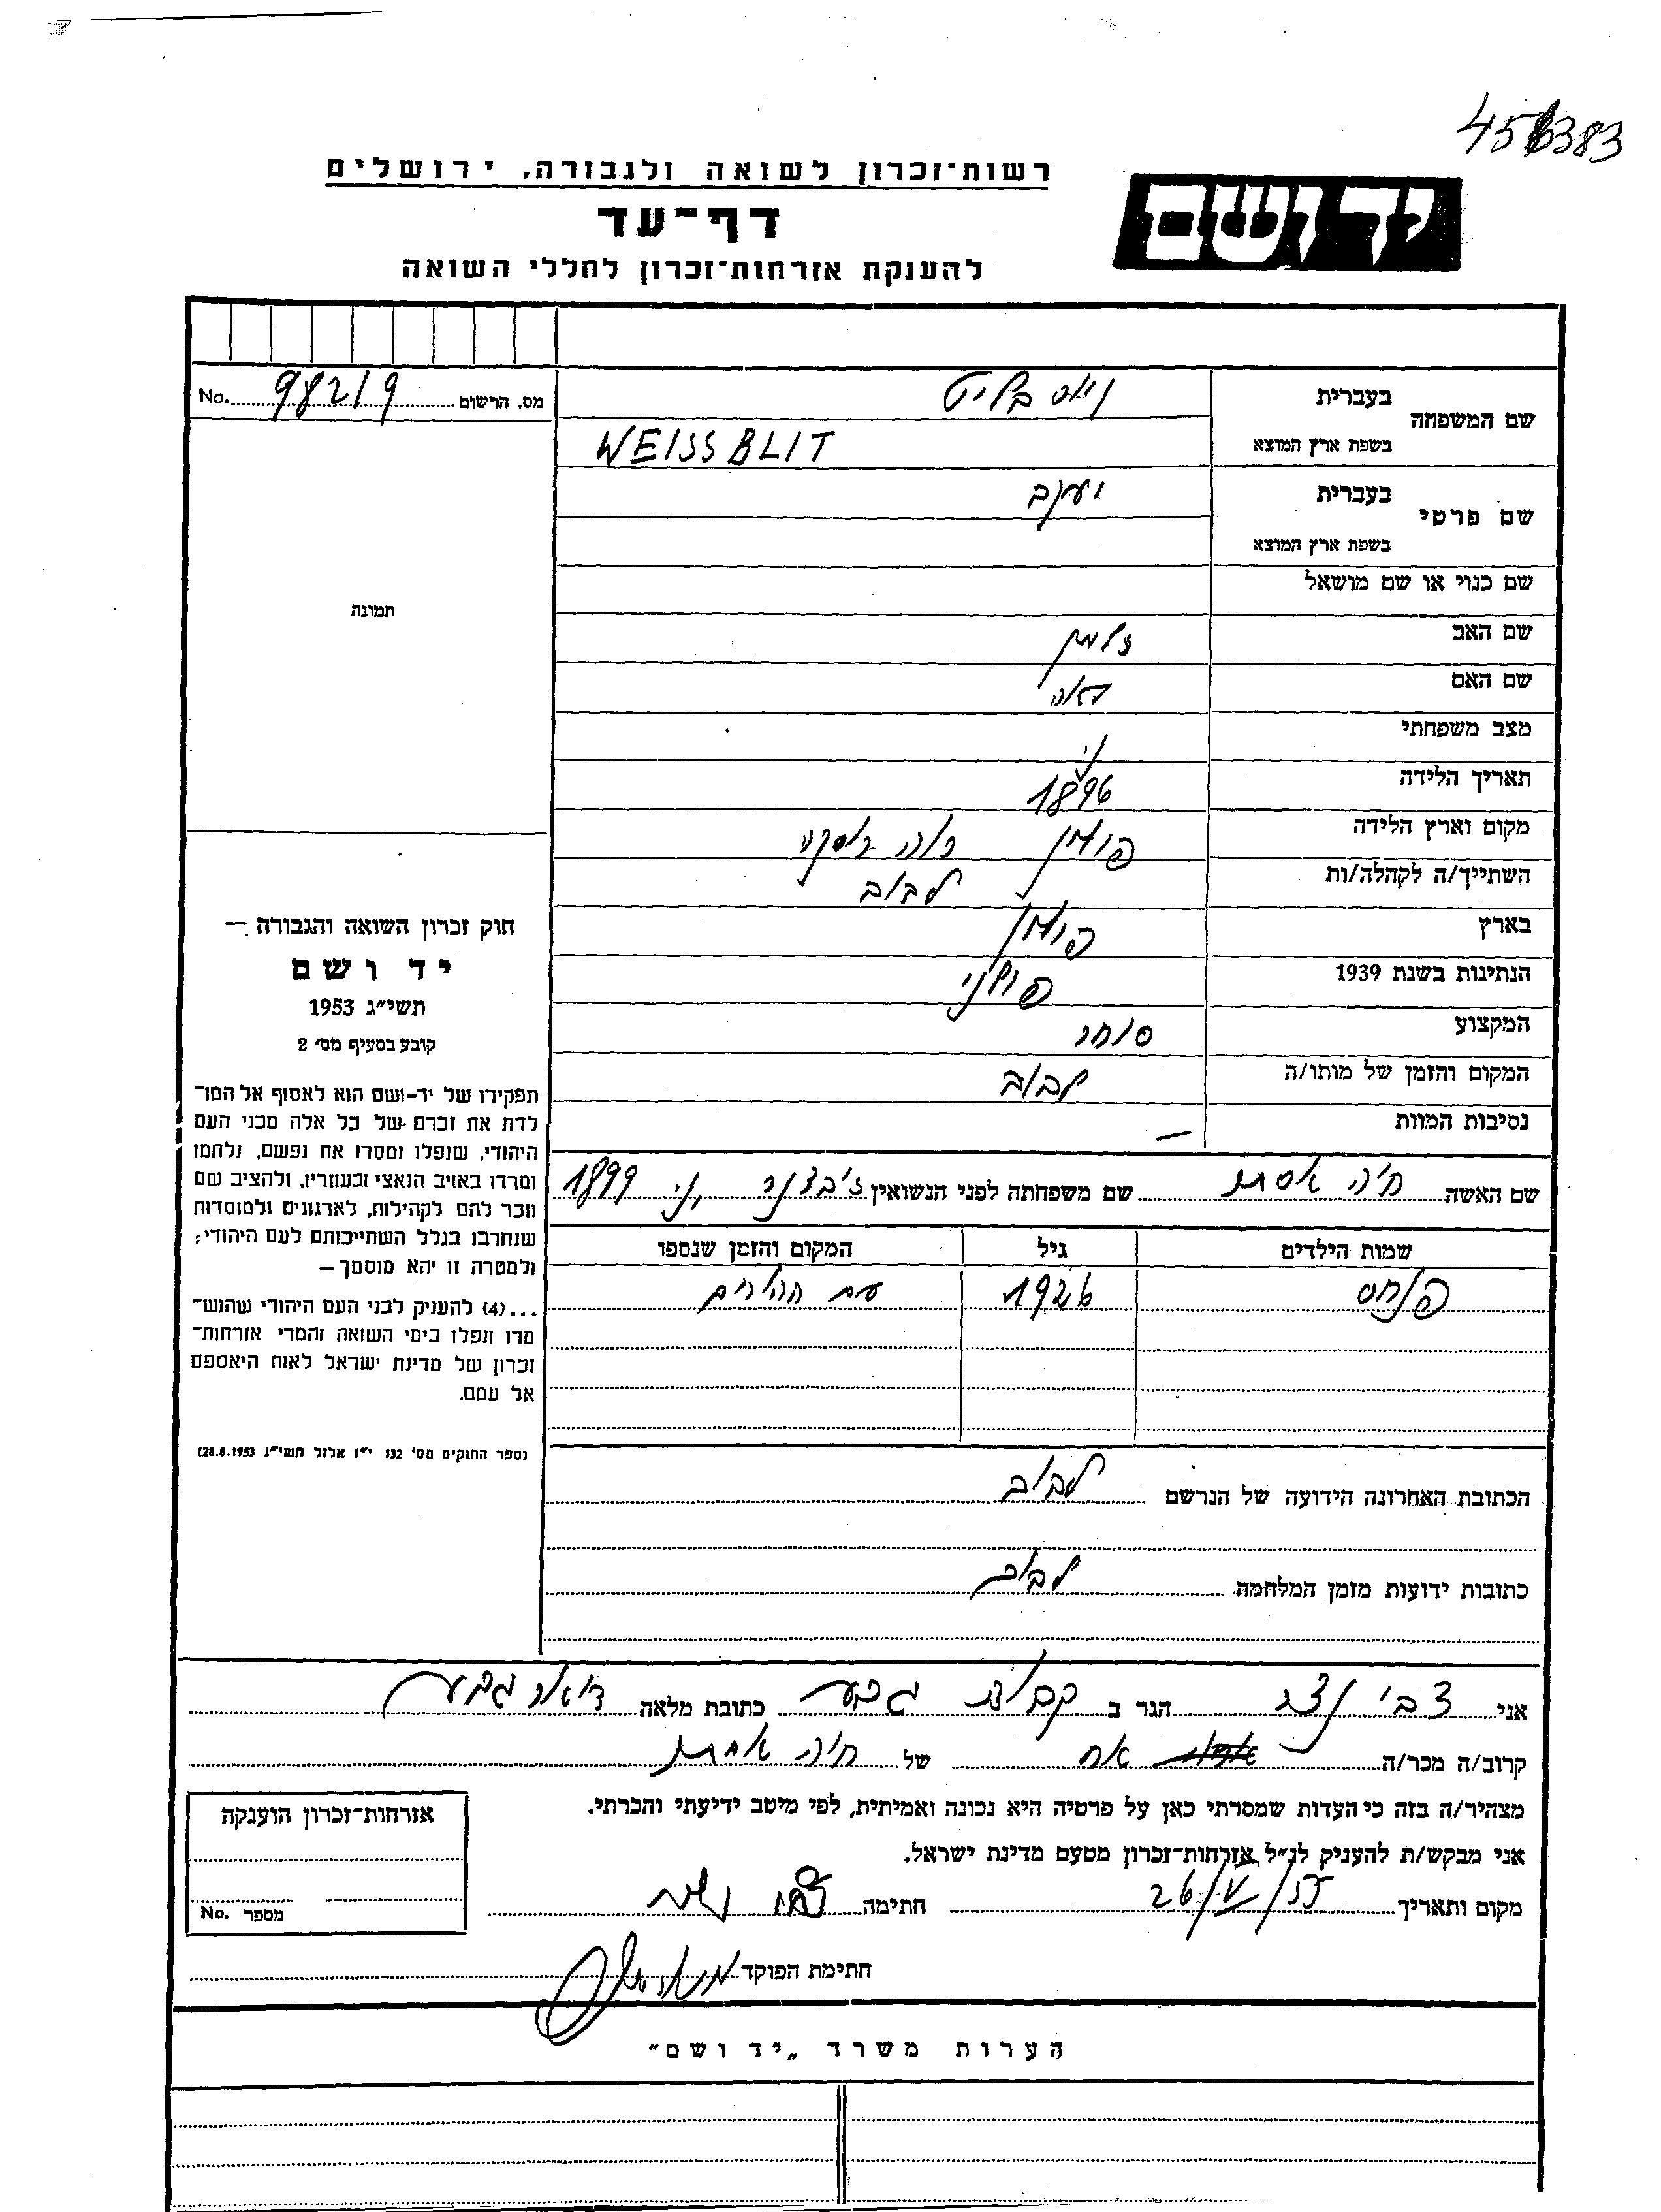 456383
רשות־זכרון לשואה ולגבורה, ירושלים
יד ושם
דף־עד
להענקת אזרחות־זכרון לחללי השואה
מס. הרשום 98219 No.
שם המשפחה
בעברית ויסבליט
בשפת ארץ המוצא WEISSBLIT
שם פרטי
בעברית יעקב
בשפת ארץ המוצא
שם כנוי או שם מושאל
תמונה
שם האב זלמן
שם האם לאה
מצב משפחתי נ׳
תאריך הלידה 1896
מקום וארץ הלידה פולין
השתייך/ה לקהלה/ות לבוב
בארץ פולין
הנתינות בשנת 1939 פולני
המקצוע סוחר
המקום והזמן של מותו/ה לבוב
נסיבות המוות —
שם האשה חיה אסתר שם משפחתה לפני הנשואין נ׳ 1899
שמות הילדים גיל המקום והזמן שנספו
פנחס 1926 עם ההורים
חוק זכרון השואה והגבורה —
יד ושם
תשי״ג 1953
קובע בסעיף מס׳ 2
תפקידו של יד-ושם הוא לאסוף אל המו־
לדת את זכרם של כל אלה מבני העם
היהודי, שנפלו ומסרו את נפשם, נלחמו
ומרדו באויב הנאצי ובעוזריו, ולהציב שם
וזכר להם לקהילות, לארגונים ולמוסדות
שנחרבו בגלל השתייכותם לעם היהודי;
ולמטרה זו יהא מוסמך —
...(4) להעניק לבני העם היהודי שהוש־
מדו ונפלו בימי השואה והמרי אזרחות־
זכרון של מדינת ישראל לאות היאספם
אל עמם.
(ספר החוקים מס׳ 132 י״ז אלול תשי״ג 28.8.1953)
הכתובת האחרונה הידועה של הנרשם לבוב
כתובות ידועות מזמן המלחמה לבוב
אני צבי הגר ב קבוצת גבע כתובת מלאה דואר גבע
קרוב/ה מכר/ה אח של חיה אסתר
מצהיר/ה בזה כי העדות שמסרתי כאן על פרטיה היא נכונה ואמיתית, לפי מיטב ידיעתי והכרתי.
אני מבקש/ת להעניק לנ״ל אזרחות־זכרון מטעם מדינת ישראל.
מקום ותאריך 26/V/55 חתימה
חתימת הפוקד
אזרחות־זכרון הוענקה
מספר No.
הערות משרד „יד ושם״